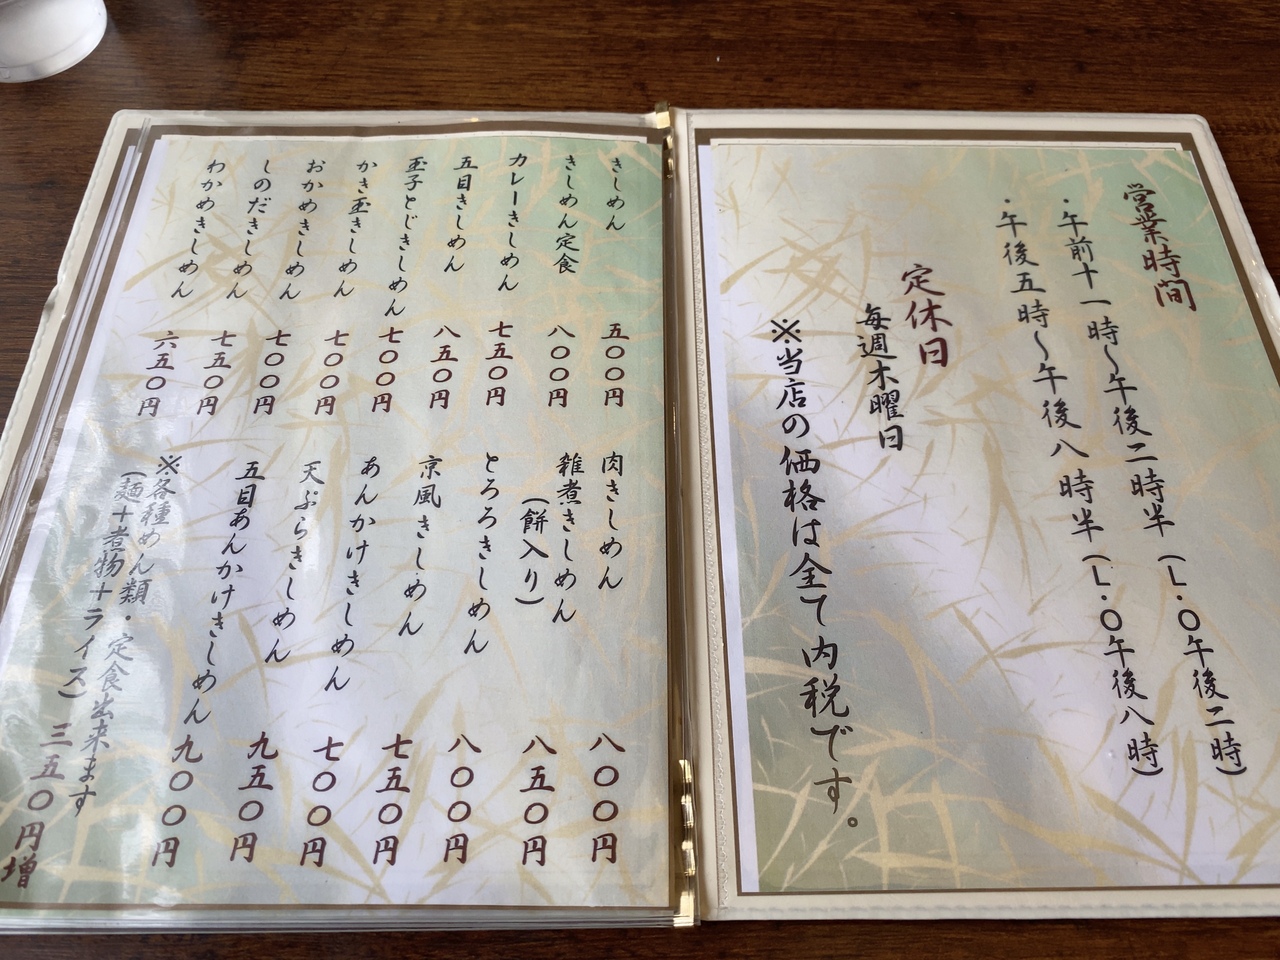 営業時間
・午前十一時~午後二時半(L.O午後二時)
・午後五時~午後八時半(L.O午後八時)
定休日
毎週木曜日
※当店の価格は全て内税です。
きしめん 五〇〇円
きしめん定食 八〇〇円
カレーきしめん 七五〇円
五目きしめん 八五〇円
玉子とじきしめん 七〇〇円
かき玉きしめん 七〇〇円
おかめきしめん 七〇〇円
しのだきしめん 七五〇円
わかめきしめん 六五〇円
肉きしめん 八〇〇円
雑煮きしめん 八五〇円
(餅入り)
とろろきしめん 八〇〇円
京風きしめん 七五〇円
あんかけきしめん 七〇〇円
天ぷらきしめん 九五〇円
五目あんかけきしめん 九〇〇円
※各種めん類・定食出来ます
(麺+煮物+ライス) 三五〇円増